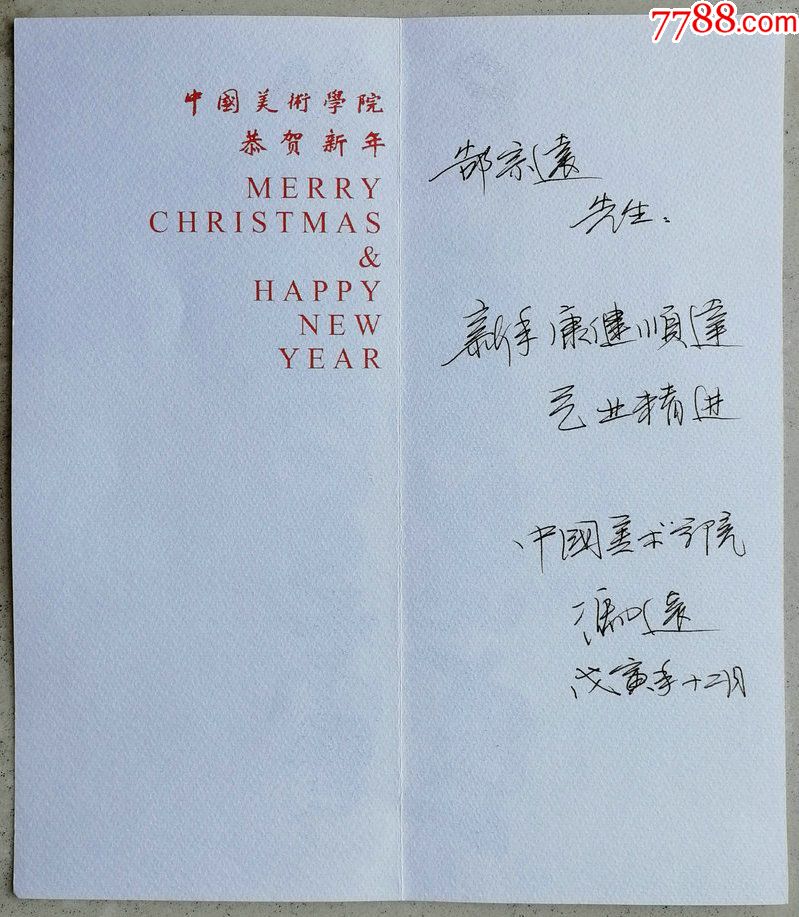 7788.com
中國美術學院
恭贺新年
MERRY
CHRISTMAS
&
HAPPY
NEW
YEAR
郜宗远
先生：
新年康健順達
艺业精进
中國美术学院
馮远
戊寅年十二月